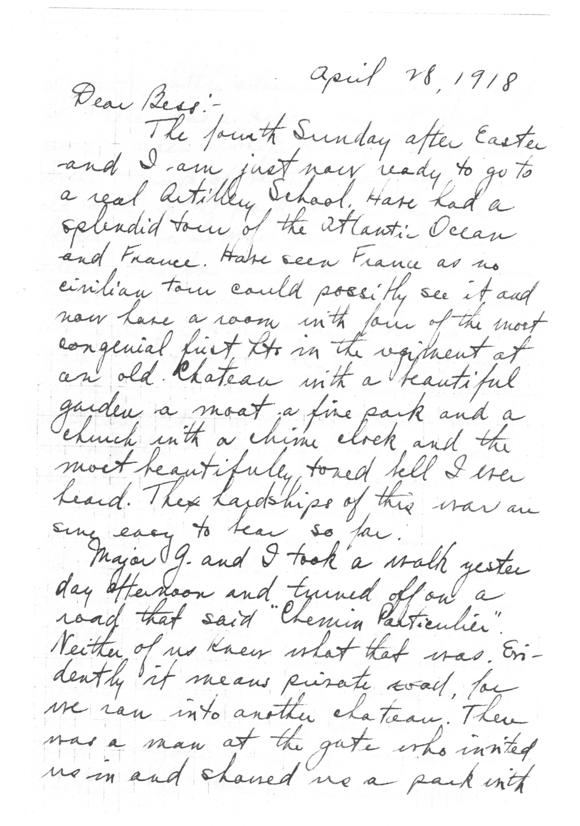 April 28, 1918
Dear Bess:-
The fourth Sunday after Easter
and I am just now ready to go to
a real Artillery School. Have had a
splendid tour of the Atlantic Ocean
and France. Have seen France as no
civilian tour could possibly see it and
now have a room with four of the most
congenial first Lts in the regiment at
an old Chateau with a beautiful
garden a moat a fine park and a
church with a chime clock and the
most beautifuley toned bell I ever
heard. The hardships of this war are
sure easy to bear so far.
Major G. and I took a walk yester
day afternoon and turned off on a
road that said "Chemin Particulier".
Neither of us knew what that was. Evi-
dently it means private road, for
we ran into another chateau. There
was a man at the gate who invited
us in and showed us a park with